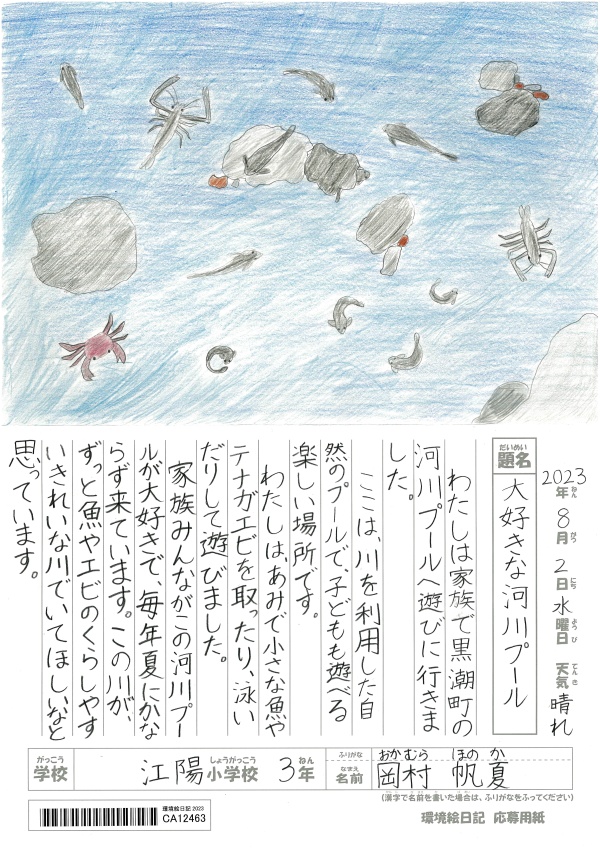 2023年ねん 8月がつ 2日にち 水曜日ようび 天気てんき 晴れ
題名だいめい 大好きな河川プール
わたしは家族で黒潮町の
河川プールへ遊びに行きま
した。
ここは、川を利用した自
然のプールで、子どもも遊べる
楽しい場所です。
わたしは、あみで小さな魚や
テナガエビを取ったり、泳い
だりして遊びました。
家族みんながこの河川プー
ルが大好きで、毎年夏にかな
らず来ています。この川が、
ずっと魚やエビのくらしやす
いきれいな川でいてほしいなと
思っています。
がっこう しょうがっこう ねん
学校 江陽小学校 3年
ふりがな おかむら ほのか
なまえ
名前 岡村 帆夏
(漢字で名前を書いた場合は、ふりがなをふってください)
環境絵日記 2023
CA12463
環境絵日記 応募用紙